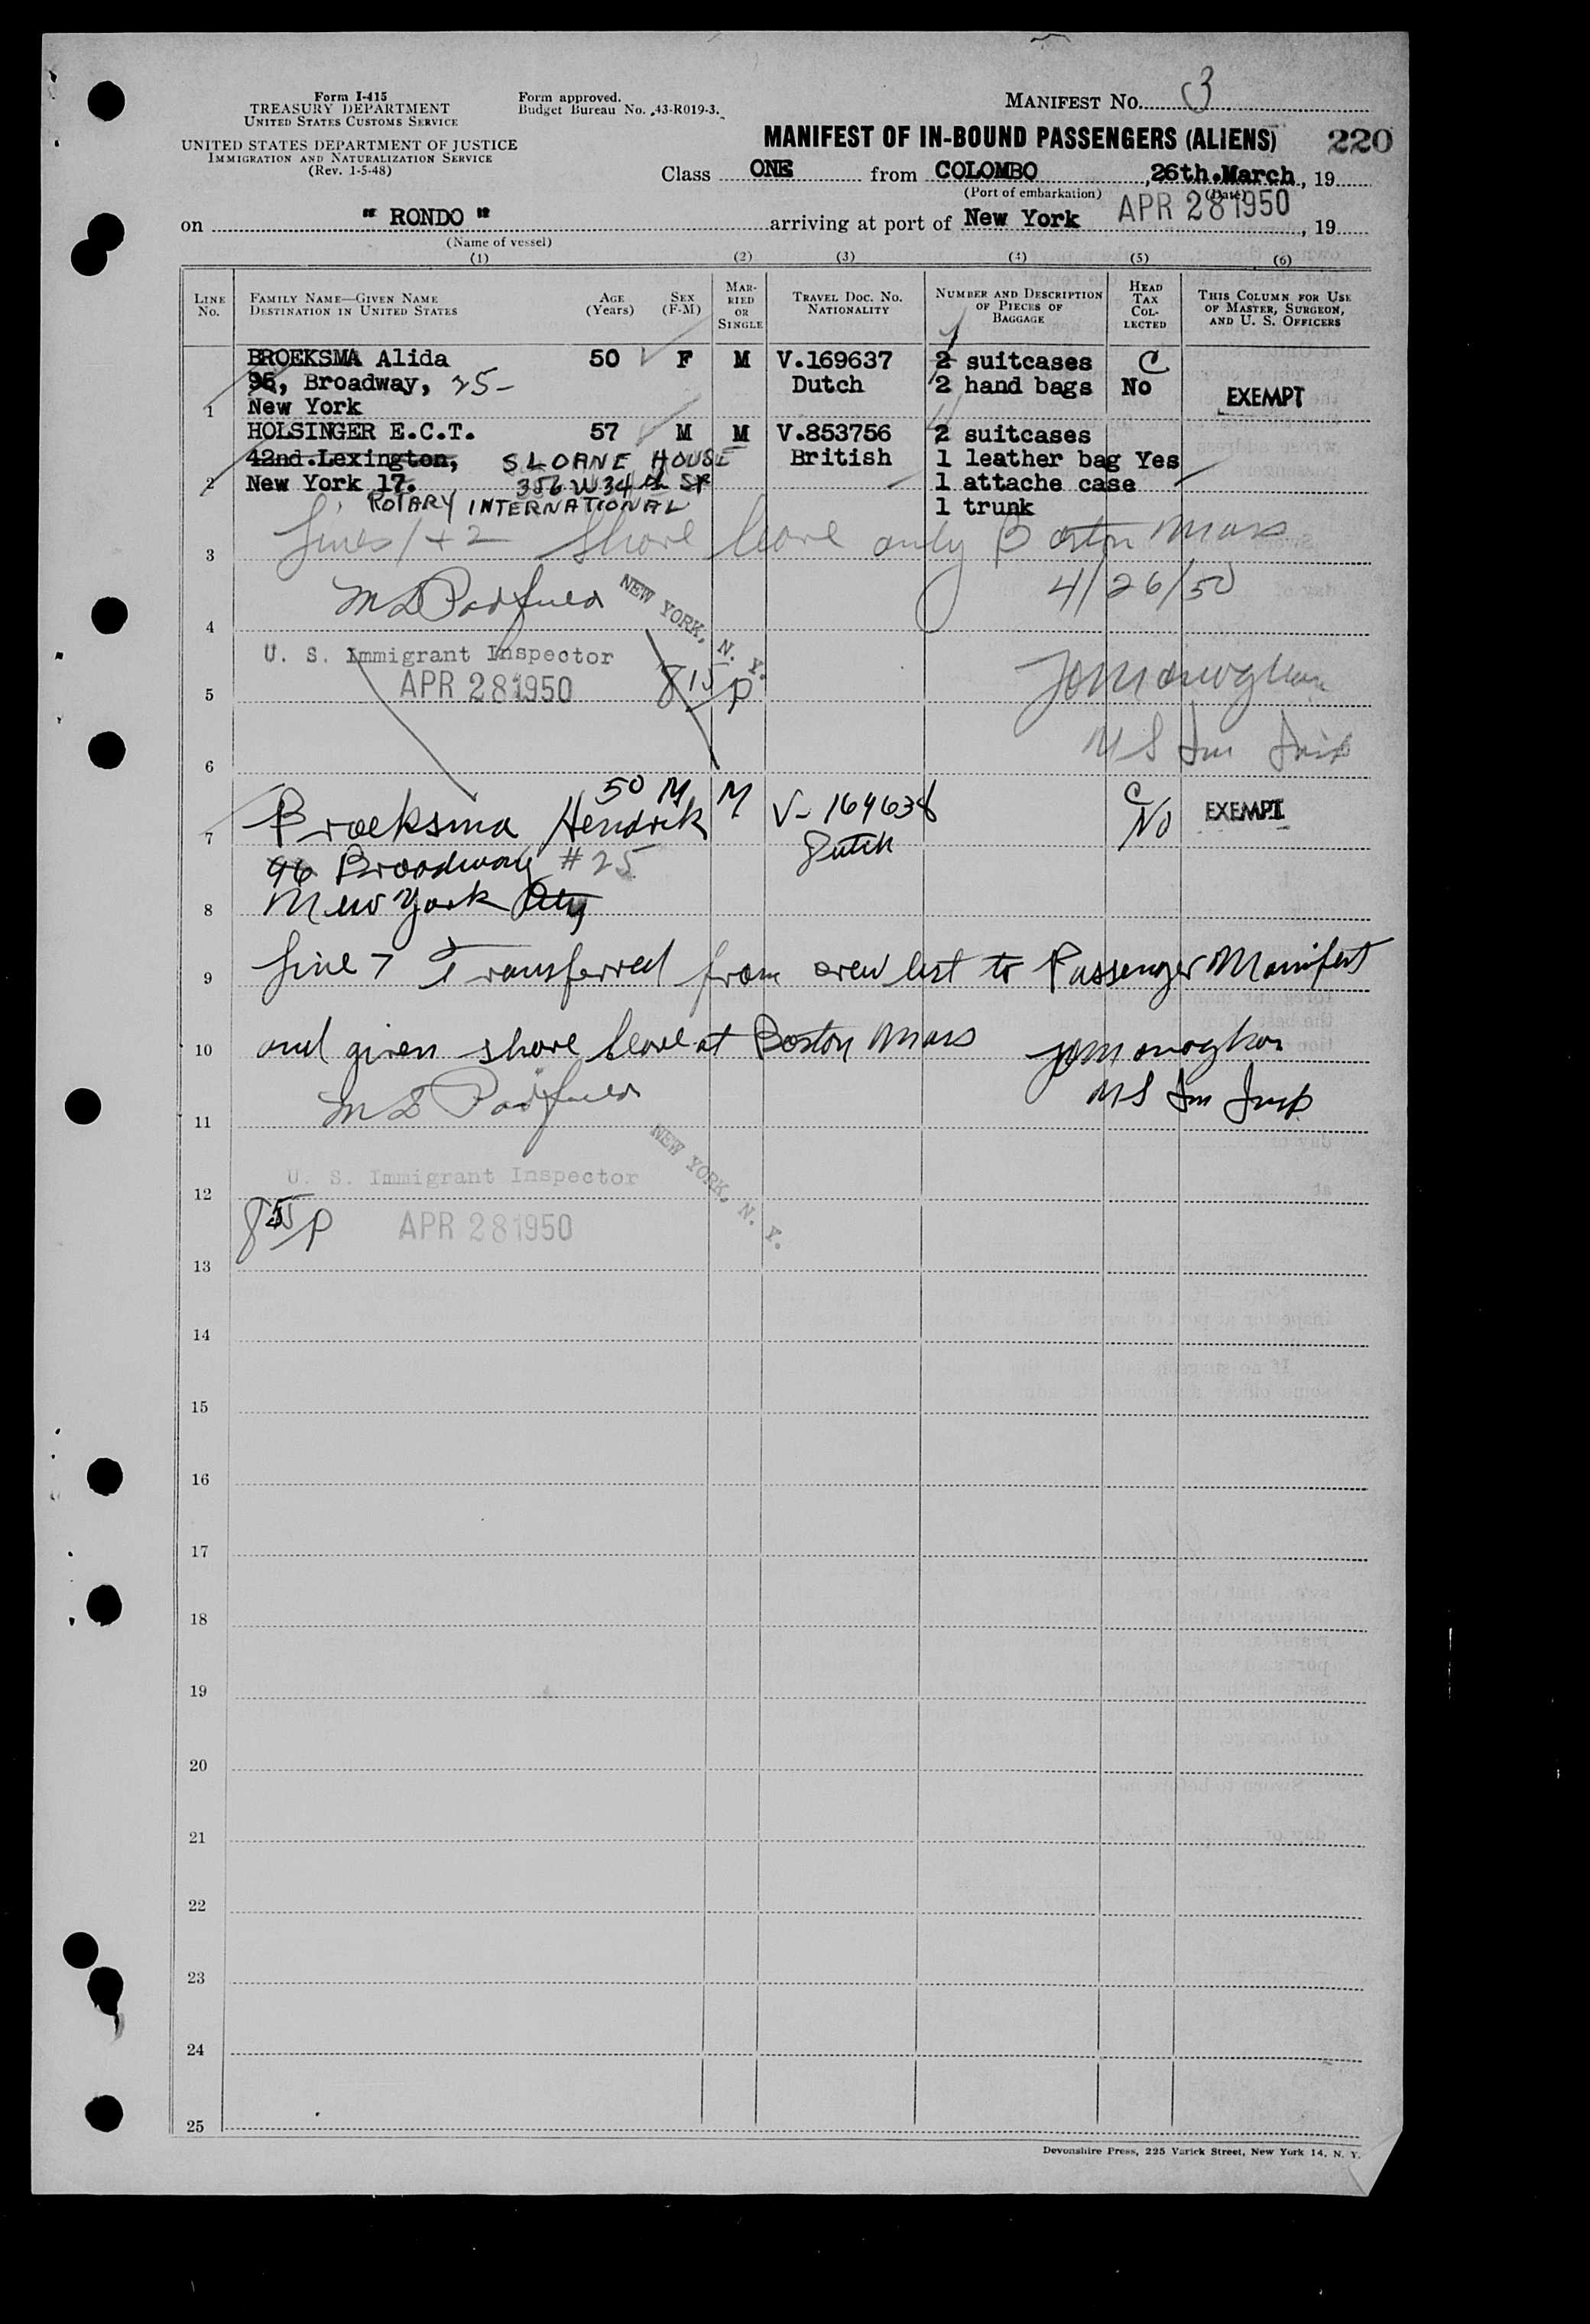 Form I-415
TREASURY DEPARTMENT
UNITED STATES CUSTOMS SERVICE
UNITED STATES DEPARTMENT OF JUSTICE
IMMIGRATION AND NATURALIZATION SERVICE
(Rev. 1-5-48)
Form approved.
Budget Bureau No. 43-R019-3.
MANIFEST NO. 3
MANIFEST OF IN-BOUND PASSENGERS (ALIENS) 220
Class ONE from COLOMBO, 26th.March, 19
(Port of embarkation) (Date)
on " RONDO " arriving at port of New York APR 28 1950, 19
(Name of vessel)
(1) (2) (3) (4) (5) (6)
LINE No. FAMILY NAME—GIVEN NAME DESTINATION IN UNITED STATES AGE (Years) SEX (F-M) MARRIED OR SINGLE TRAVEL DOC. NO. NATIONALITY NUMBER AND DESCRIPTION OF PIECES OF BAGGAGE HEAD TAX COLLECTED THIS COLUMN FOR USE OF MASTER, SURGEON, AND U. S. OFFICERS
BROEKSMA Alida 50 F M V.169637 2 suitcases C
Broadway, 25- Dutch 2 hand bags No EXEMPT
1 New York
HOLSINGER E.C.T. 57 M M V.853756 2 suitcases
42nd.Lexington, SLOANE HOUSE British 1 leather bag Yes
2 New York 17. 356 W 34th St 1 attache case
ROTARY INTERNATIONAL 1 trunk
3 Lines 1 + 2 Shore leave only Boston Mass
4/26/50
4 M L Padfield NEW YORK, N. Y.
U. S. Immigrant Inspector
5 APR 28 1950 815/P JO Monaghan
6 US Im Insp
50 M M V-169638 C
7 Broeksma Hendrik Dutch No EXEMPT
96 Broadway #25
8 New York City
9 Line 7 Transferred from crew list to Passenger Manifest
10 and given shore leave at Boston Mass JO Monaghan
11 M L Padfield US Im Insp
NEW YORK, N. Y.
U. S. Immigrant Inspector
12
APR 28 1950
13
14
15
16
17
18
19
20
21
22
23
24
25
Devonshire Press, 225 Varick Street, New York 14, N. Y.